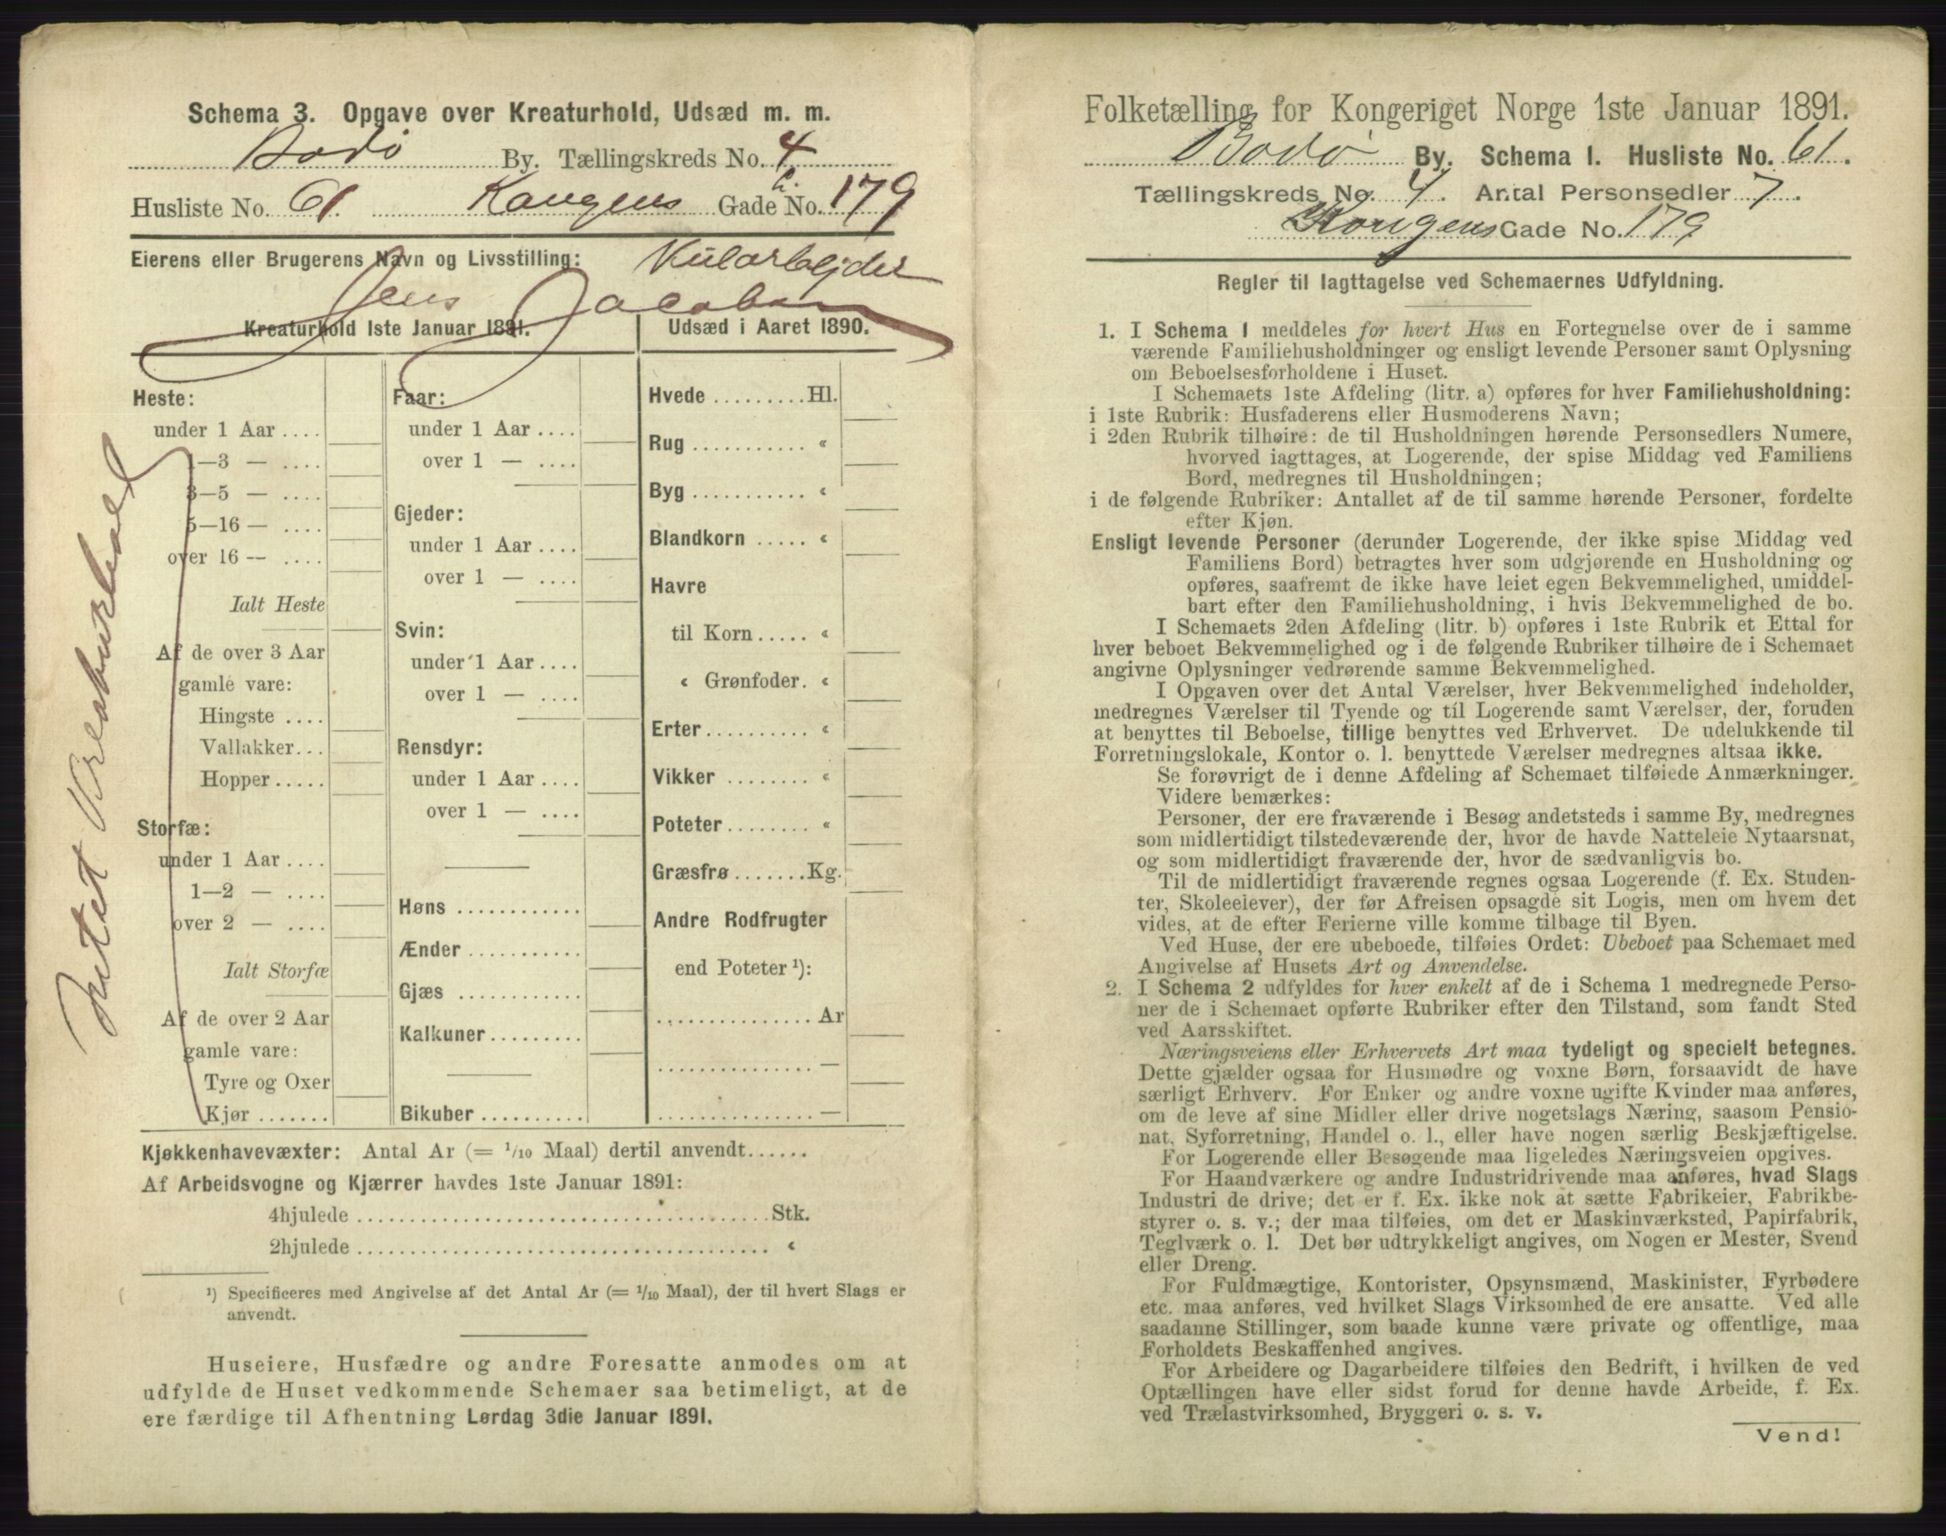 Schema 3. Opgave over Kreaturhold, Udsæd m. m.
Bodø By. Tællingskreds No. 4
Husliste No. 61. Kongens Gade No. 179
Eierens eller Brugerens Navn og Livsstilling:
Jens Jacobsen
Kreaturhold 1ste Januar 1891.
Heste:
under 1 Aar ....
1—3 — ....
3—5 — ....
5—16 — ....
over 16 — ....
Ialt Heste
Af de over 3 Aar
gamle vare:
Hingste ....
Vallakker...
Hopper .....
Storfæ:
under 1 Aar ....
1—2 — ....
over 2 — ....
Ialt Storfæ
Af de over 2 Aar
gamle vare:
Tyre og Oxer
Kjør .......
Intet Kreaturhold
Faar:
under 1 Aar ....
over 1 — ....
Gjeder:
under 1 Aar ....
over 1 — ....
Svin:
under 1 Aar ....
over 1 — ....
Rensdyr:
under 1 Aar ....
over 1 — ....
Høns ............
Ænder ...........
Gjæs ............
Kalkuner.........
Bikuber ..........
Udsæd i Aaret 1890.
Hvede .........Hl.
Rug ........... «
Byg ........... «
Blandkorn ..... «
Havre
til Korn..... «
« Grønfoder. «
Erter.......... «
Vikker ........ «
Poteter........ «
Græsfrø .......Kg.
Andre Rodfrugter
end Poteter ¹):
............... Ar
............... —
............... —
Kjøkkenhavevæxter: Antal Ar (= 1/10 Maal) dertil anvendt......
Af Arbeidsvogne og Kjærrer havdes 1ste Januar 1891:
4hjulede ..................................... Stk.
2hjulede ..................................... «
¹) Specificeres med Angivelse af det Antal Ar (= 1/10 Maal), der til hvert Slags er
anvendt.
Huseiere, Husfædre og andre Foresatte anmodes om at
udfylde de Huset vedkommende Schemaer saa betimeligt, at de
ere færdige til Afhentning Lørdag 3die Januar 1891.
Folketælling for Kongeriget Norge 1ste Januar 1891.
Bodø By. Schema 1. Husliste No. 61.
Tællingskreds No. 4. Antal Personsedler 7.
Kongens Gade No. 179
Regler til Iagttagelse ved Schemaernes Udfyldning.
1. I Schema 1 meddeles for hvert Hus en Fortegnelse over de i samme
værende Familiehusholdninger og ensligt levende Personer samt Oplysning
om Beboelsesforholdene i Huset.
I Schemaets 1ste Afdeling (litr. a) opføres for hver Familiehusholdning:
i 1ste Rubrik: Husfaderens eller Husmoderens Navn;
i 2den Rubrik tilhøire: de til Husholdningen hørende Personsedlers Numere,
hvorved iagttages, at Logerende, der spise Middag ved Familiens
Bord, medregnes til Husholdningen;
i de følgende Rubriker: Antallet af de til samme hørende Personer, fordelte
efter Kjøn.
Ensligt levende Personer (derunder Logerende, der ikke spise Middag ved
Familiens Bord) betragtes hver som udgjørende en Husholdning og
opføres, saafremt de ikke have leiet egen Bekvemmelighed, umiddel-
bart efter den Familiehusholdning, i hvis Bekvemmelighed de bo.
I Schemaets 2den Afdeling (litr. b) opføres i 1ste Rubrik et Ettal for
hver beboet Bekvemmelighed og i de følgende Rubriker tilhøire de i Schemaet
angivne Oplysninger vedrørende samme Bekvemmelighed.
I Opgaven over det Antal Værelser, hver Bekvemmelighed indeholder,
medregnes Værelser til Tyende og til Logerende samt Værelser, der, foruden
at benyttes til Beboelse, tillige benyttes ved Erhvervet. De udelukkende til
Forretningslokale, Kontor o. l. benyttede Værelser medregnes altsaa ikke.
Se forøvrigt de i denne Afdeling af Schemaet tilføiede Anmærkninger.
Videre bemærkes:
Personer, der ere fraværende i Besøg andetsteds i samme By, medregnes
som midlertidigt tilstedeværende der, hvor de havde Natteleie Nytaarsnat,
og som midlertidigt fraværende der, hvor de sædvanligvis bo.
Til de midlertidigt fraværende regnes ogsaa Logerende (f. Ex. Studen-
ter, Skoleeiever), der før Afreisen opsagde sit Logis, men om hvem det
vides, at de efter Ferierne ville komme tilbage til Byen.
Ved Huse, der ere ubeboede, tilføies Ordet: Ubeboet paa Schemaet med
Angivelse af Husets Art og Anvendelse.
2. I Schema 2 udfyldes for hver enkelt af de i Schema 1 medregnede Perso-
ner de i Schemaet opførte Rubriker efter den Tilstand, som fandt Sted
ved Aarsskiftet.
Næringsveiens eller Erhvervets Art maa tydeligt og specielt betegnes.
Dette gjælder ogsaa for Husmødre og voxne Børn, forsaavidt de have
særligt Erhverv. For Enker og andre voxne ugifte Kvinder maa anføres,
om de leve af sine Midler eller drive nogetslags Næring, saasom Pensio-
nat, Syforretning, Handel o. l., eller have nogen særlig Beskjæftigelse.
For Logerende eller Besøgende maa ligeledes Næringsveien opgives.
For Haandværkere og andre Industridrivende maa anføres, hvad Slags
Industri de drive; det er f. Ex. ikke nok at sætte Fabrikeier, Fabrikbe-
styrer o. s. v.; der maa tilføies, om det er Maskinværksted, Papirfabrik,
Teglværk o. l. Det bør udtrykkeligt angives, om Nogen er Mester, Svend
eller Dreng.
For Fuldmægtige, Kontorister, Opsynsmænd, Maskinister, Fyrbødere
etc. maa anføres, ved hvilket Slags Virksomhed de ere ansatte. Ved alle
saadanne Stillinger, som baade kunne være private og offentlige, maa
Forholdets Beskaffenhed angives.
For Arbeidere og Dagarbeidere tilføies den Bedrift, i hvilken de ved
Optællingen have eller sidst forud for denne havde Arbeide, f. Ex.
ved Trælastvirksomhed, Bryggeri o. s. v.
Vend!